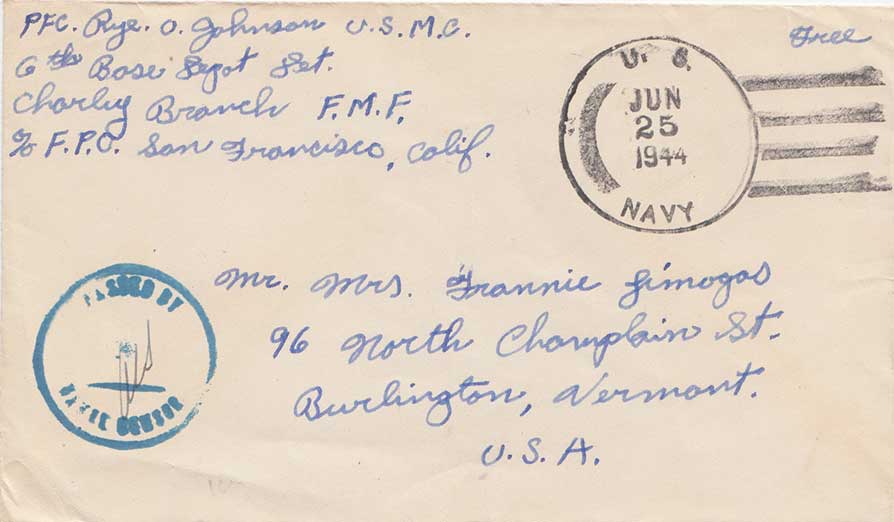 PFC. Rye. O. Johnson U.S.M.C.
6th Base Depot Det.
Charley Branch F.M.F.
c/o F.P.O. San Francisco, Calif.
Free
U. S.
JUN
25
1944
NAVY
PASSED BY
NAVAL CENSOR
Mr. Mrs. Frannie Limogas
96 North Champlain St.
Burlington, Vermont.
U.S.A.